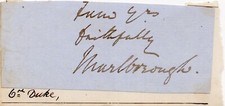 Yrs
faithfully
Marlborough.
6th Duke,